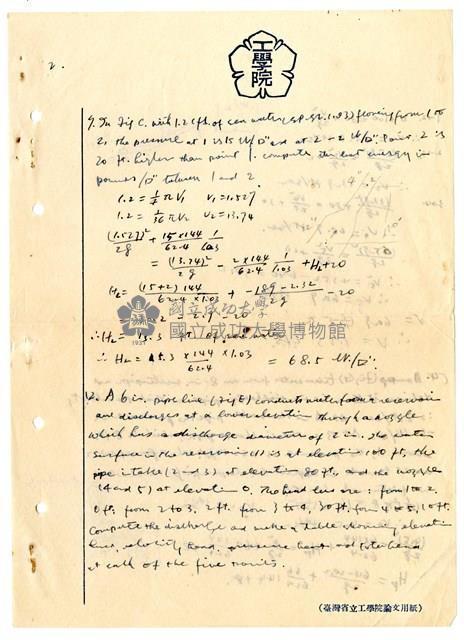 工學院
2.
9. In Fig C, with 1.2 cfs. of sea water (sp. gr. 1.03) flowing from 1 to
2, the pressure at 1 is 15 #/□" and at 2 - 2 #/□". Point 2 is
20 ft. higher than point 1. compute the lost energy in
pounds/□" between 1 and 2.
V₁ = 1.527
V₂ = 13.74
(1.527)²/2g + 15×144/62.4 1/1.03
= (13.74)²/2g - 2×144/62.4 1/1.03 + HL + 20
HL = (15+2)144/62.4×1.03 + -20
國立成功大學
國立成功大學博物館
1931
= 68.5 #/□"
12. A 6 in. pipe line (Fig E) conducts water from a reservoir
and discharges at a lower elevation through a nozzle
which has a discharge diameter of 2 in. The water
surface in the reservoir (1) is at elevation 100 ft, the
pipe intake (2 and 3) at elevation 80 ft, and the nozzle
(4 and 5) at elevation 0. The head loss are: from 1 to 2,
0 ft; from 2 to 3, 2 ft; from 3 to 4, 30 ft; from 4 to 5, 10 ft.
Compute the discharge and make a table showing elevation
head, velocity head, pressure head and total head
at each of the five points.
(臺灣省立工學院論文用紙)